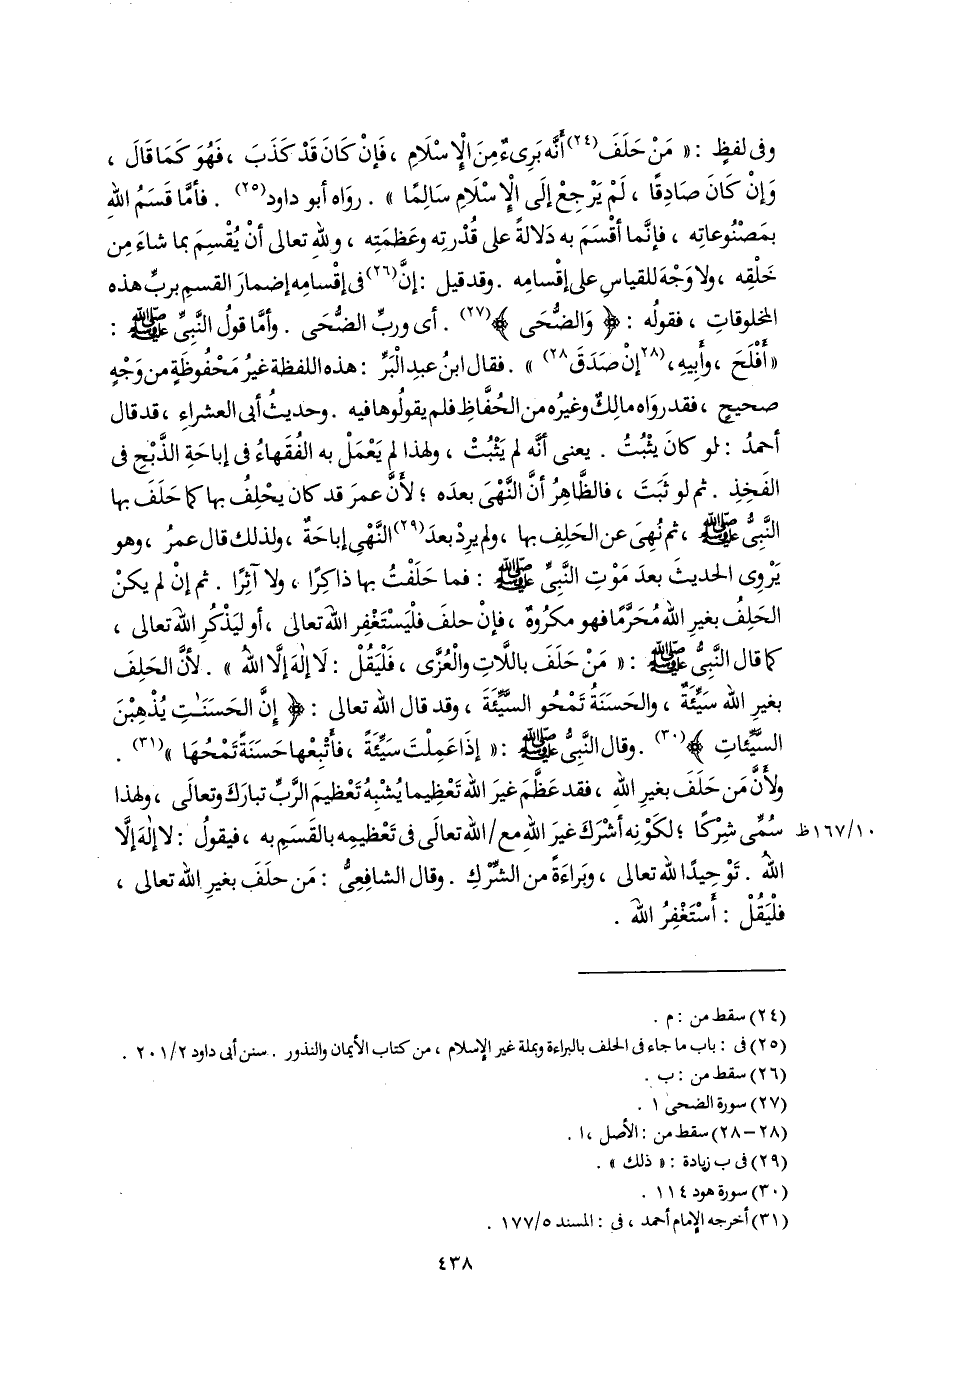 وفى لفظٍ : « مَنْ حَلَفَ(٢٤) أَنَّه بَرِىءٌ مِنَ الْإِسْلَامِ ، فَإِنْ كَانَ قَدْ كَذَبَ ، فَهُوَ كَمَا قَالَ ،
وَإِنْ كَانَ صَادِقًا ، لَمْ يَرْجِعْ إِلَى الْإِسْلَامِ سَالِمًا » . رَوَاه أبو داود(٢٥) . فأمَّا قَسَمُ اللهِ
بمَصْنُوعاتِه ، فإنَّما أقْسَمَ به دَلالةً على قُدْرتِه وعَظَمَتِه ، وللهِ تعالى أنْ يُقْسِمَ بما شاءَ مِن
خَلْقِه ، ولا وَجْهَ للقياسِ على إقْسامِه . وقد قيل : إنَّ(٢٦) فى إقْسامِه إضمارَ القسمِ بربِّ هذه
المخلوقاتِ ، فقولُه : ﴿ وَالضُّحَى ﴾(٢٧) . أى وربِّ الضُّحَى . وأمَّا قولُ النَّبِىِّ ﷺ :
« أَفْلَحَ ، وأَبِيهِ ، (٢٨إنْ صَدَقَ٢٨) » . فقال ابنُ عبدِ الْبَرِّ : هذه اللفظة غيرُ مَحْفُوظَةٍ من وَجْهٍ
صحيحٍ ، فقد روَاه مالكٌ وغيرُه من الحُفَّاظِ فلم يقولُوها فيه . وحديثُ أبى العشراءِ ، قد قال
أحمدُ : لو كانَ يثْبُتُ . يعنى أنَّه لم يَثْبُتْ ، ولهذا لم يَعْمَلْ به الفُقَهاءُ فى إباحَةِ الذَّبْحِ فى
الفَخِذِ . ثم لو ثَبَتَ ، فالظَّاهِرُ أنَّ النَّهْىَ بعدَه ؛ لأَنَّ عمرَ قد كان يحْلِفُ بها كما حَلَفَ بها
النَّبِىُّ ﷺ ، ثم نُهِىَ عن الحَلِفِ بها ، ولم يرِدْ بعدَ(٢٩) النَّهْىِ إباحَةٌ ، ولذلك قال عمرُ ، وهو
يَرْوِى الحديثَ بعدَ مَوْتِ النَّبِىِّ ﷺ : فما حَلَفْتُ بها ذاكِرًا ، ولا آثِرًا . ثم إنْ لم يكنْ
الحَلِفُ بغيرِ اللهِ مُحَرَّمًا فهو مكرُوهٌ ، فإنْ حلفَ فلْيَسْتَغْفِرِ اللهَ تعالى ، أو ليَذْكُرِ اللهَ تعالى ،
كما قال النَّبِىُّ ﷺ : « مَنْ حَلَفَ باللاتِ والْعُزَّى ، فَلْيَقُلْ : لَا إلٰهَ إلَّا اللهُ » . لأنَّ الحَلِفَ
بغيرِ اللهِ سَيِّئَةٌ ، والحَسَنَةُ تَمْحُو السَّيِّئَةَ ، وقد قال اللهُ تعالى : ﴿ إِنَّ الحَسَنَٰتِ يُذْهِبْنَ
السَّيِّئاتِ ﴾(٣٠) . وقال النَّبِىُّ ﷺ : « إذَا عَمِلْتَ سَيِّئَةً ، فأَتْبِعْها حَسَنَةً تَمْحُهَا »(٣١) .
ولأَنَّ مَن حَلَفَ بغيرِ اللهِ ، فقد عَظَّمَ غيرَ اللهِ تَعْظِيما يُشْبِهُ تَعْظِيمَ الرَّبِّ تبارَكَ وتعالَى ، ولهذا
سُمِّىَ شِرْكًا ؛ لكَوْنِه أشْرَكَ غيرَ اللهِ مع / اللهِ تعالَى فى تَعْظِيمِه بالقَسَمِ به ، فيقولُ : لا إلٰهَ إلَّا ١٦٧/١٠ظ
اللهُ . تَوْحِيدًا للهِ تعالى ، وبَراءَةً من الشِّرْكِ . وقال الشافِعِىُّ : مَن حلَفَ بغيرِ اللهِ تعالى ،
فلْيَقُلْ : أَسْتَغْفِرُ اللهَ .
(٢٤) سقط من : م .
(٢٥) فى : باب ما جاء فى الحلف بالبراءة وبملة غير الإسلام ، من كتاب الأيمان والنذور . سنن أبى داود ٢٠١/٢ .
(٢٦) سقط من : ب .
(٢٧) سورة الضحى ١ .
(٢٨-٢٨) سقط من : الأصل ، ا .
(٢٩) فى ب زيادة : « ذلك » .
(٣٠) سورة هود ١١٤ .
(٣١) أخرجه الإمام أحمد ، فى : المسند ١٧٧/٥ .
٤٣٨